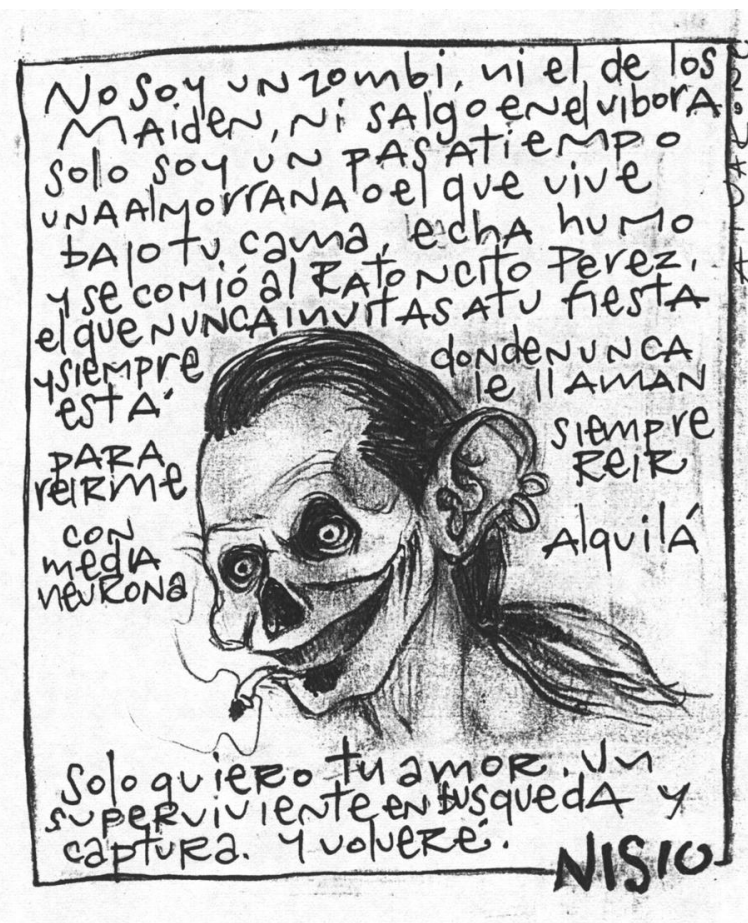 No soy un zombi, ni el de los
Maiden, ni salgo en el vibora
solo soy un pasatiempo
una almorrana o el que vive
bajo tu cama, echa humo
y se comió al Ratoncito Perez,
el que nunca invitas a tu fiesta
y siempre donde nunca
está le llaman
para siempre
reirme reir
con alquilá
media
neurona
Solo quiero tu amor. Un
superviviente en busqueda y
captura. Y volveré.
NISIO